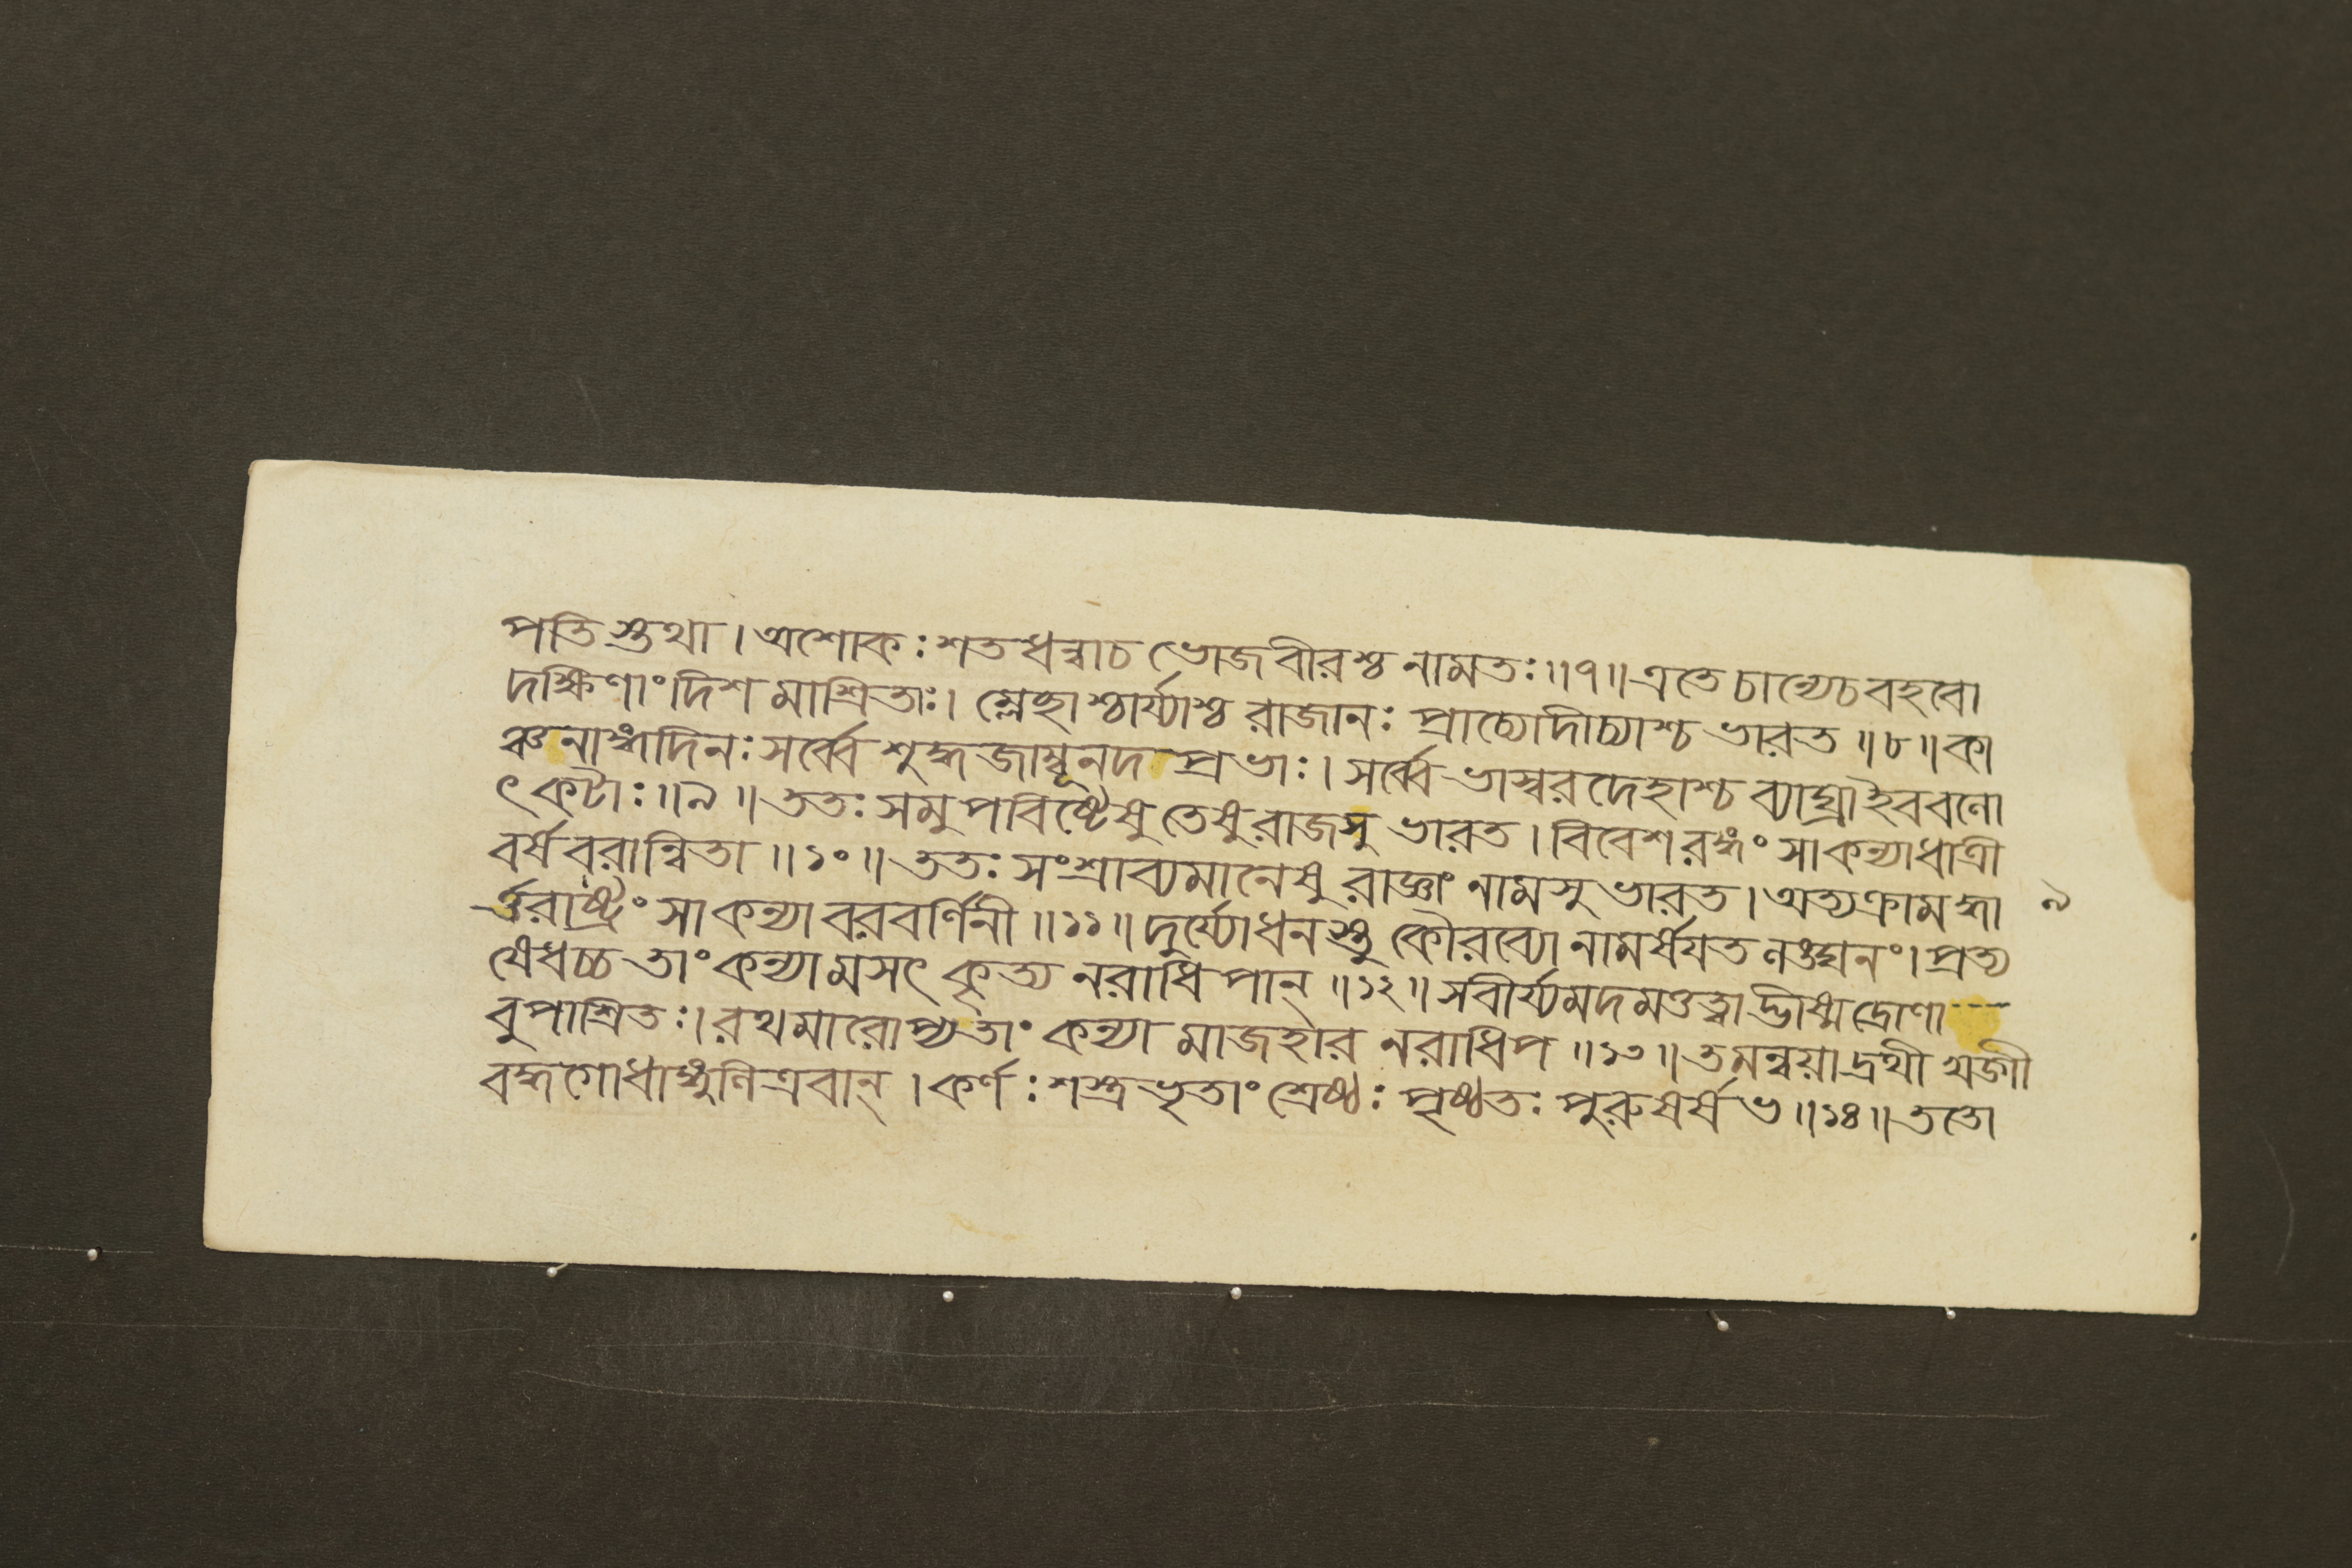 পতিস্তথা। অশোকঃ শতধন্বাচ ভোজবীরশ্চ নামতঃ॥৭॥ এতে চান্যেচ বহবো
দক্ষিণাং দিশমাশ্রিতাঃ। ম্লেচ্ছাশ্চার্য্যাশ্চ রাজানঃ প্রাচ্যোদীচ্যাশ্চ ভারত॥৮॥ কা
ঞ্চনাঙ্গদিনঃ সর্ব্বে শুদ্ধজাম্বূনদপ্রভাঃ। সর্ব্বে ভাস্বরদেহাশ্চ ব্যাঘ্রাইববলো
ৎকটাঃ॥৯॥ ততঃ সমুপবিষ্টেষু তেষু রাজসু ভারত। বিবেশ রঙ্গং সাকন্যাধাত্রী
বর্ষবরান্বিতা॥১০॥ ততঃ সংশ্রাব্যমানেষু রাজ্ঞাং নামসু ভারত। অত্যক্রামদ্ধা
র্ত্তরাষ্ট্রং সাকন্যা বরবর্ণিনী॥১১॥ দুর্য্যোধনস্তু কৌরব্যো নামর্ষয়ত লঙ্ঘনং। প্রত্য
ষেধচ্চ তাং কন্যামসৎকৃত্য নরাধিপান্॥১২॥ সবীর্য্যমদমত্তত্বাদ্ভীষ্মদ্রোণা
বুপাশ্রিতঃ। রথমারোপ্য তাং কন্যামাজহার নরাধিপ॥১৩॥ তমন্বয়াদ্রথী খড়্গী
বদ্ধগোধাঙ্গুলিত্রবান্। কর্ণঃ শস্ত্রভৃতাং শ্রেষ্ঠঃ পৃষ্ঠতঃ পুরুষর্ষভ॥১৪॥ ততো
৯